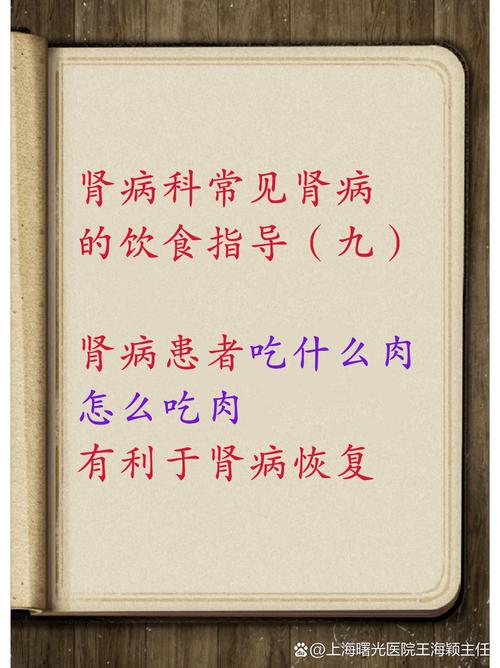 肾病科常见肾病
的饮食指导（九）
肾病患者吃什么肉
怎么吃肉
有利于肾病恢复
@上海曙光医院王海颖主任